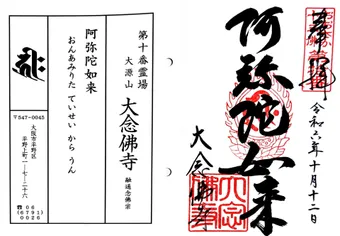 奉拝
令和六年十月十二日
阿弥陀如来
大念佛寺
第十番霊場
大源山 大念佛寺 融通念佛宗
阿弥陀如来
おんあみりた ていせい から うん
〒547-0045
大阪市平野区
平野上町一ー七ー二十六
06
(6791)
0026